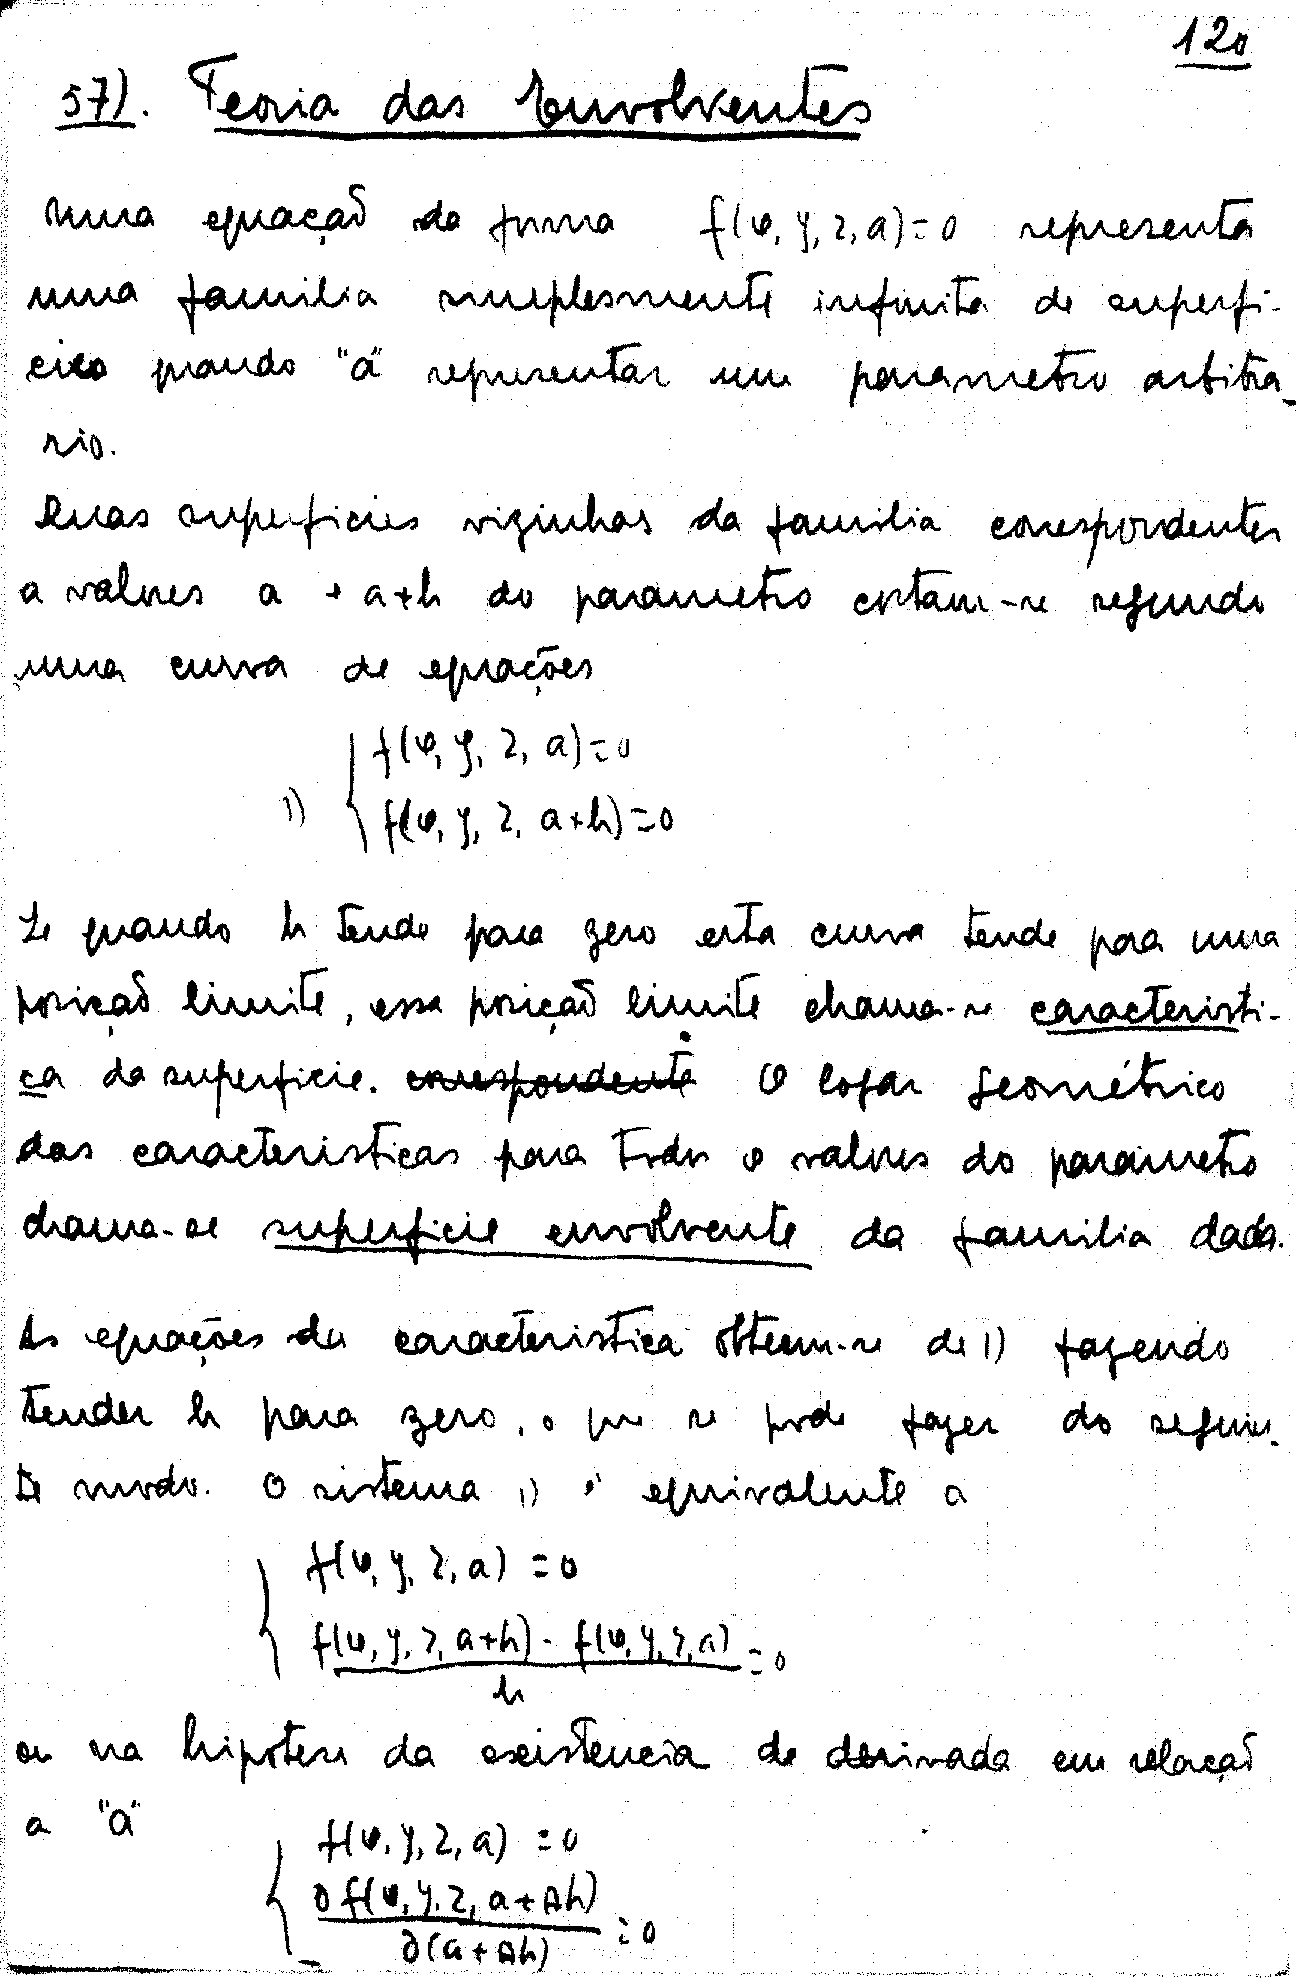 120
57). Teoria das Envolventes
Uma equação da forma f(x, y, z, a)=0 representa
uma familia simplesmente infinita de superfi-
cies quando "a" representar um parametro arbitra-
rio.
Duas superficies vizinhas da familia correspondentes
a valores a e a+h do parametro cortam-se segundo
uma curva de equações
f(x, y, z, a)=0
1) f(x, y, z, a+h)=0
Se quando h tende para zero esta curva tende para uma
posição limite, essa posição limite chama-se caracteristi-
ca da superficie. correspondente O logar geométrico
das caracteristicas para todos os valores do parametro
chama-se superficie envolvente da familia dada.
As equações da caracteristica obteem-se de 1) fazendo
tender h para zero, o que se pode fazer do seguin-
te modo. O sistema 1) é equivalente a
f(x, y, z, a) = 0
f(x, y, z, a+h) - f(x, y, z, a) = 0
h
ou na hipotese da existencia de derivada em relação
a "a"
f(x, y, z, a) = 0
∂f(x, y, z, a+θh) = 0
∂(a+θh)